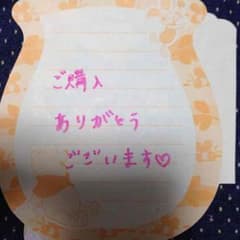 ご購入
ありがとう
ございます♡